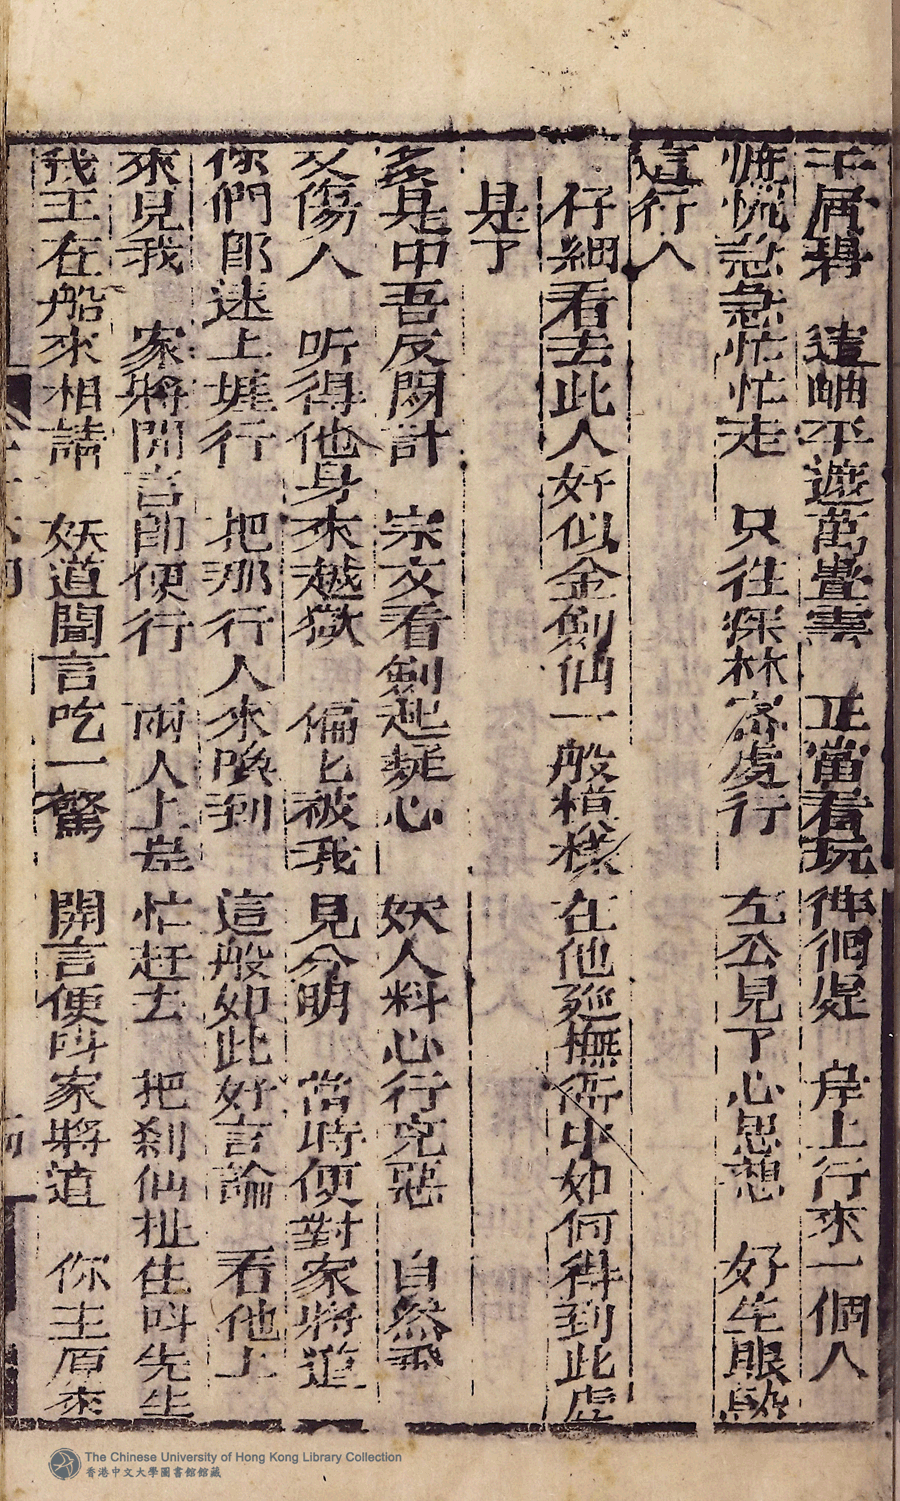 千層碧 遠岫平遮萬疊雲 正當看玩徘徊處 岸上行來一個人
慌慌急急忙忙走 只往深林密處行 左公見了心思想 好生眼熟
這行人
仔細看去此人好似金劍仙一般模樣在他廵撫衙中如何得到此處
是了
多是中吾反間計 宗文看劍起疑心 妖人料心行兇惡 自然飛
又傷人 听得他身來越獄 偏匕被我見分明 當時便對家將道
你們即速上堐行 把那行人來喚到 這般如此好言論 看他上
來見我 家將開言即便行 兩人上岸忙赶去 把剎仙扯住叫先生
我主在船來相請 妖道聞言吃一驚 開言便叫家將道 你主原來
The Chinese University of Hong Kong Library Collection
香港中文大學圖書館館藏